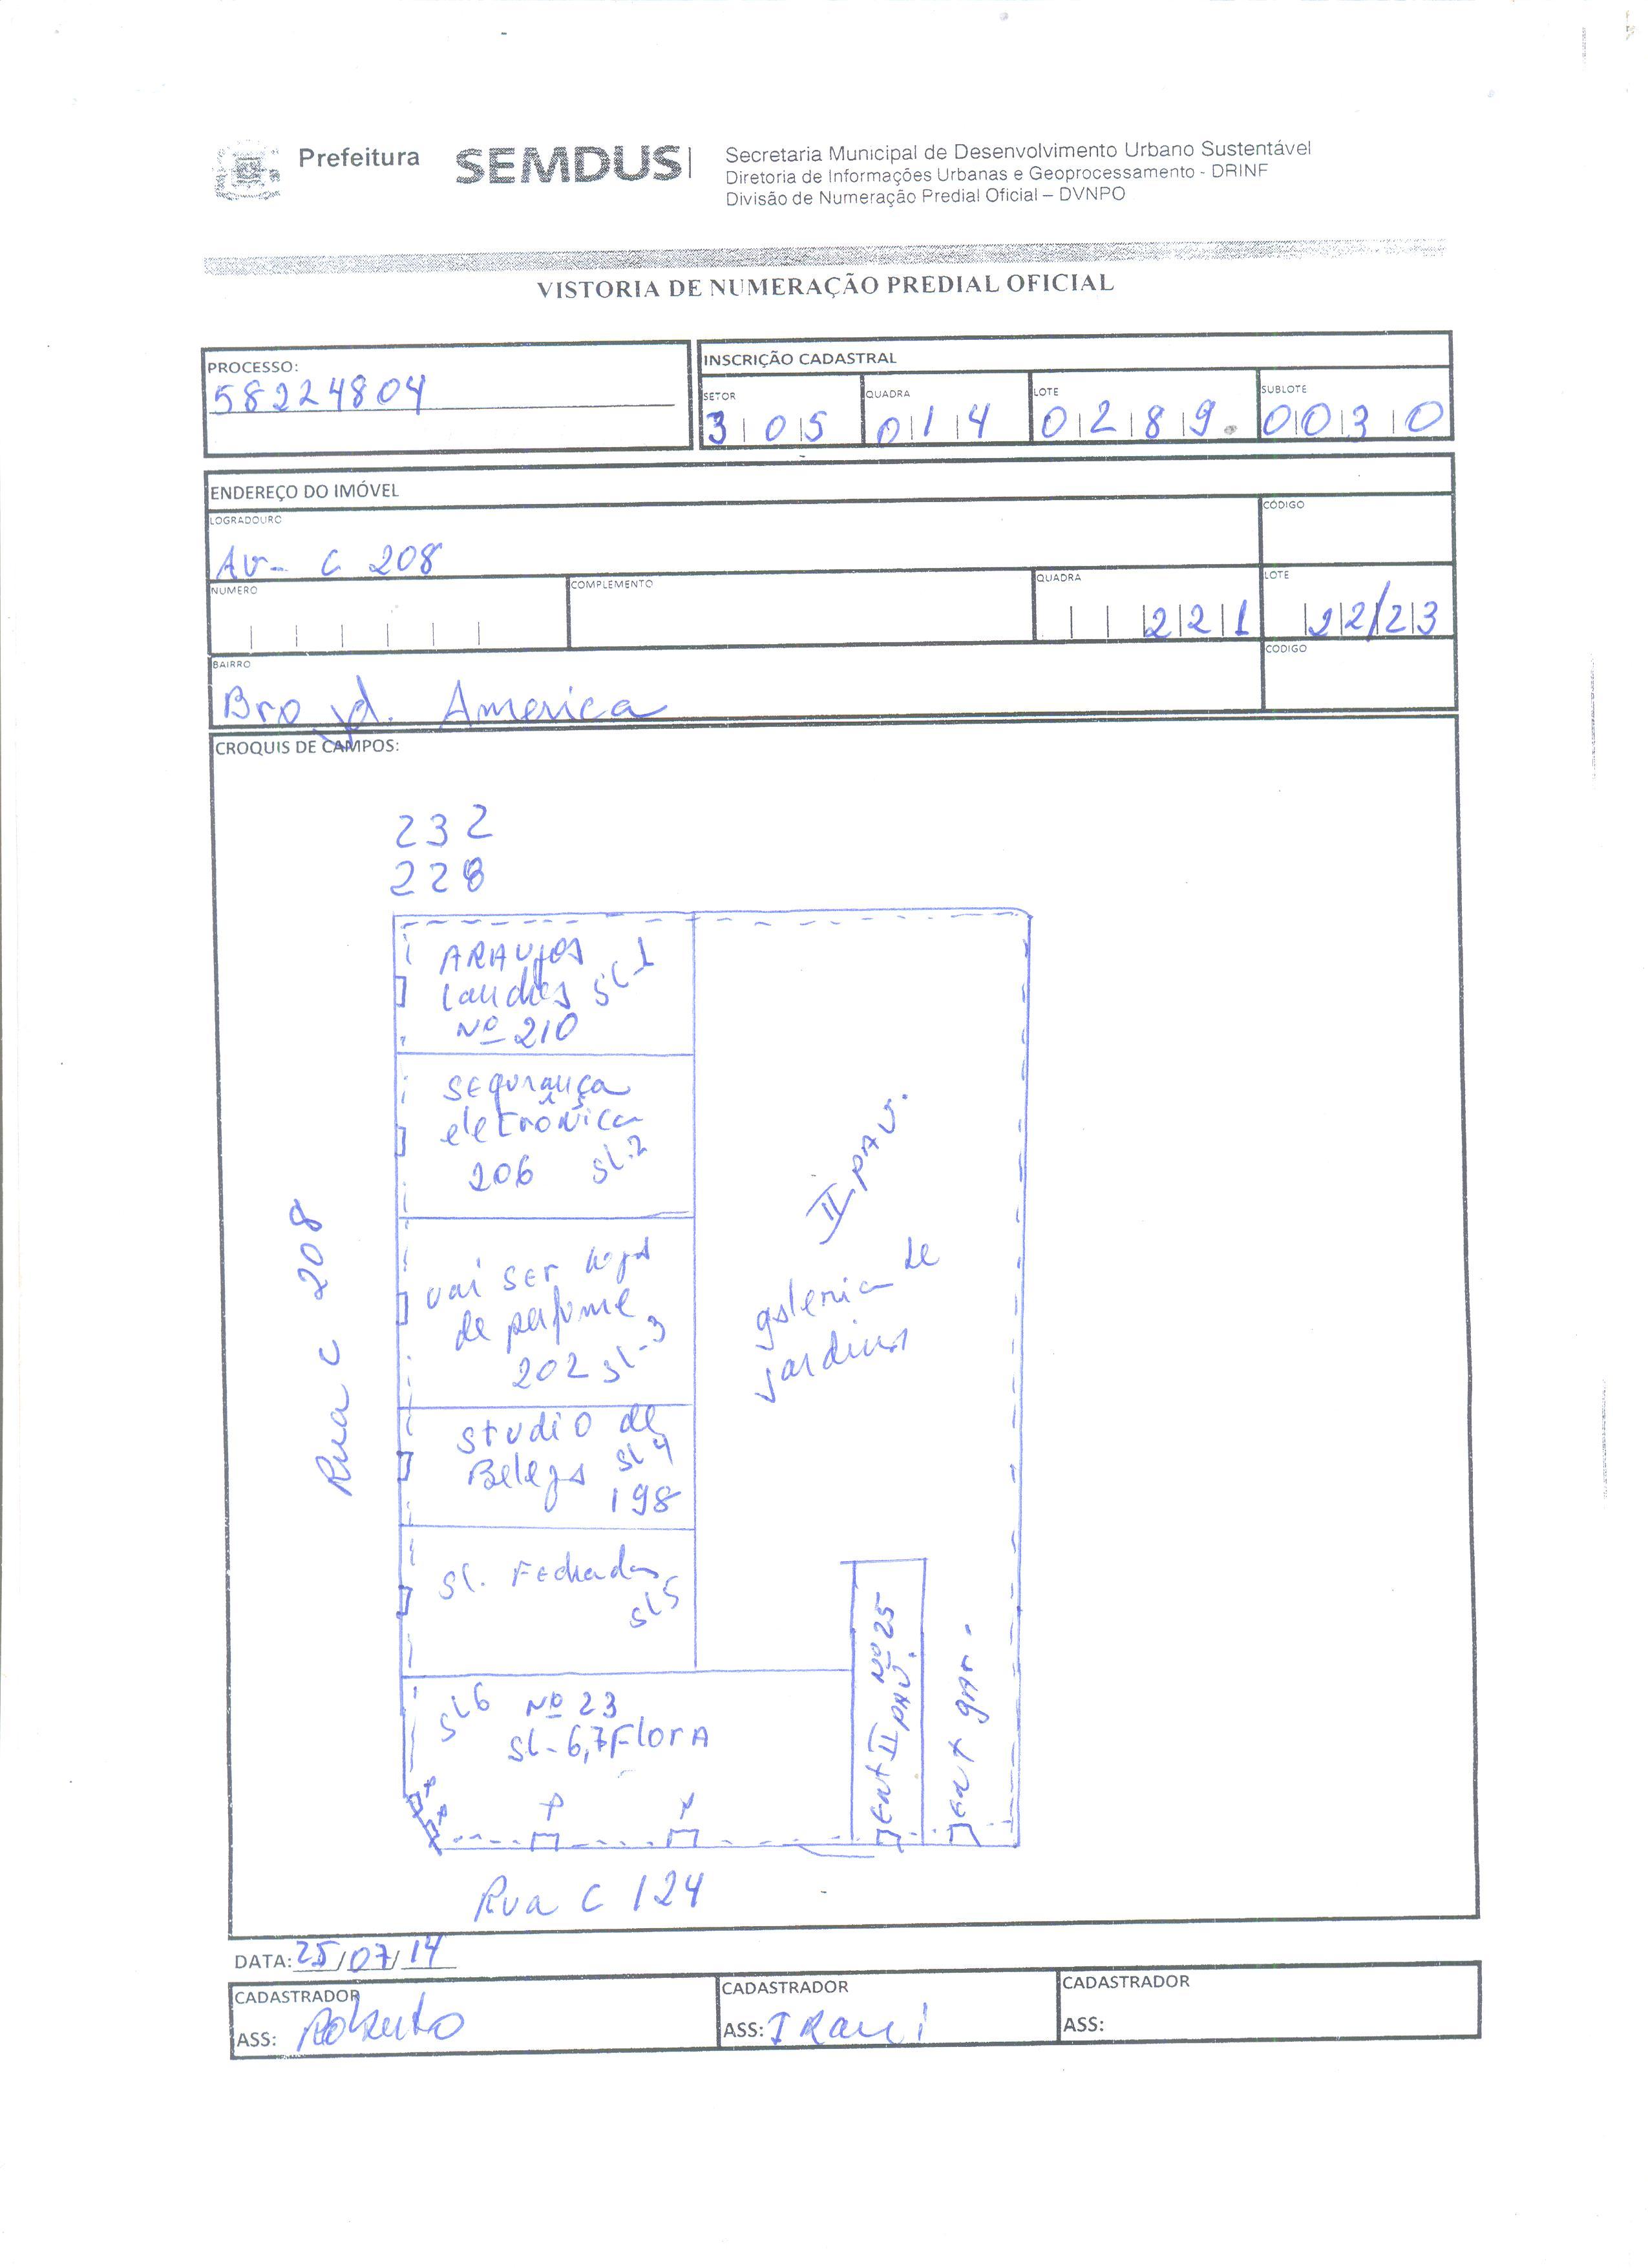 Prefeitura
SEMDUS
Secretaria Municipal de Desenvolvimento Urbano Sustentável
Diretoria de Informações Urbanas e Geoprocessamento - DRINF
Divisão de Numeração Predial Oficial – DVNPO
VISTORIA DE NUMERAÇÃO PREDIAL OFICIAL
PROCESSO:
58224804
INSCRIÇÃO CADASTRAL
SETOR
305
QUADRA
014
LOTE
0289.
SUBLOTE
00310
ENDEREÇO DO IMÓVEL
LOGRADOURO
Av- C 208
CÓDIGO
NUMERO
COMPLEMENTO
QUADRA
221
LOTE
22/23
BAIRRO
Bro Jd. America
CODIGO
CROQUIS DE CAMPOS:
232
228
ARAUJOS
Lanches sl 1
Nº 210
SEgurança
eletrônica
206 sl.2
vai ser loja
de perfume
202 sl-3
studio de
Beleza sl 4
198
sl. FEchada
sl 5
sl 6 Nº 23
sl- 6,7 FlorA
II PAV.
galeria de
jardins
Rua C 208
Nº 25
Ent II PAV.
Ent gAr.
Rua C 124
DATA: 25/07/14
CADASTRADOR
ASS: Roberto
CADASTRADOR
ASS: IRani
CADASTRADOR
ASS: